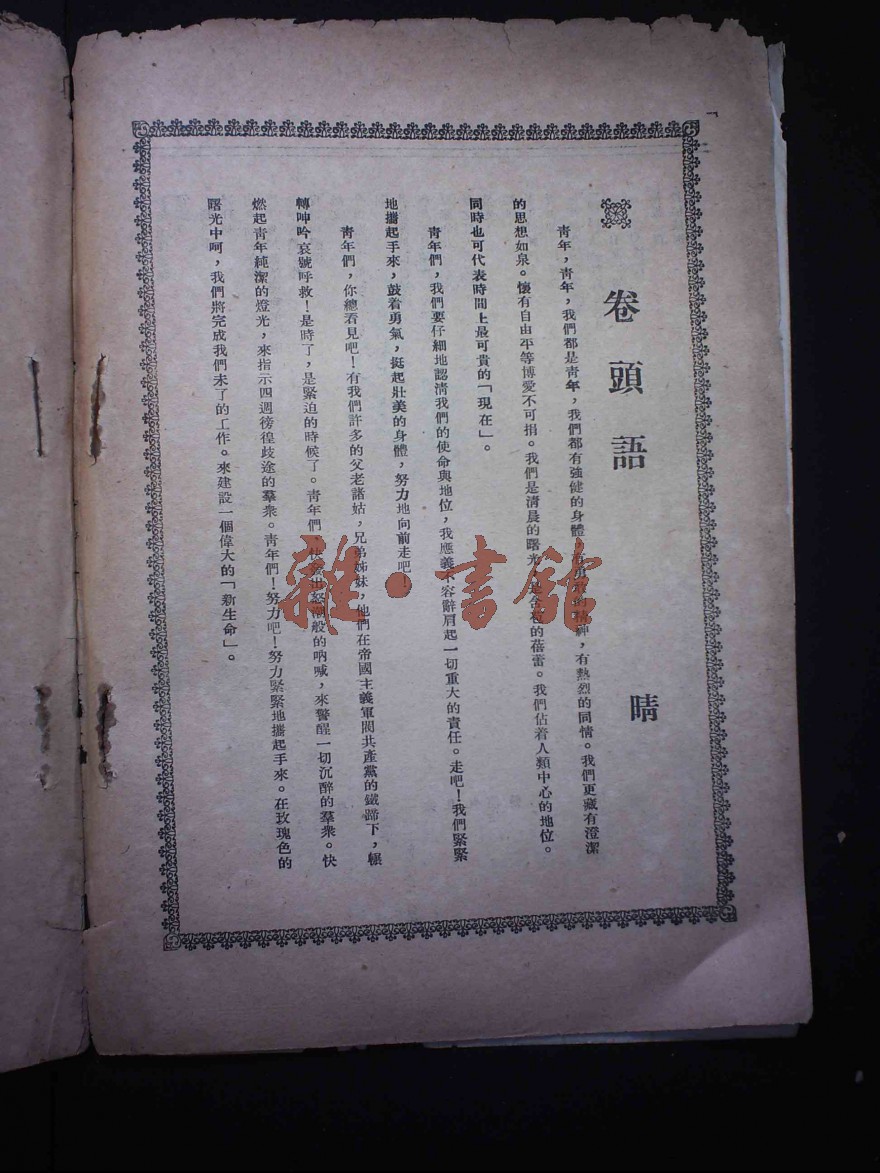 卷頭語
晴
青年,青年,我們都是青年,我們都有強健的身體,有勇敢的精神,有熱烈的同情。我們更藏有澄潔
的思想如泉。懷有自由平等博愛不可捐。我們是清晨的曙光,是含苞的蓓蕾。我們佔着人類中心的地位。
同時也可代表時間上最可貴的「現在」。
青年們,我們要仔細地認清我們的使命與地位,我應義不容辭肩起一切重大的責任。走吧!我們緊緊
地攜起手來,鼓着勇氣,挺起壯美的身體,努力地向前走吧!
青年們,你總看見吧!有我們許多的父老諸姑,兄弟姊妹,他們在帝國主義軍閥共產黨的鐵蹄下,輾
轉呻吟哀號呼救!是時了,是緊迫的時候了。青年們,快發出怒潮般的吶喊,來警醒一切沉醉的羣衆。快
燃起青年純潔的燈光,來指示四週徬徨歧途的羣衆。青年們!努力吧!努力緊緊地攜起手來。在玫瑰色的
曙光中呵,我們將完成我們未了的工作。來建設一個偉大的「新生命」。
雜·書館